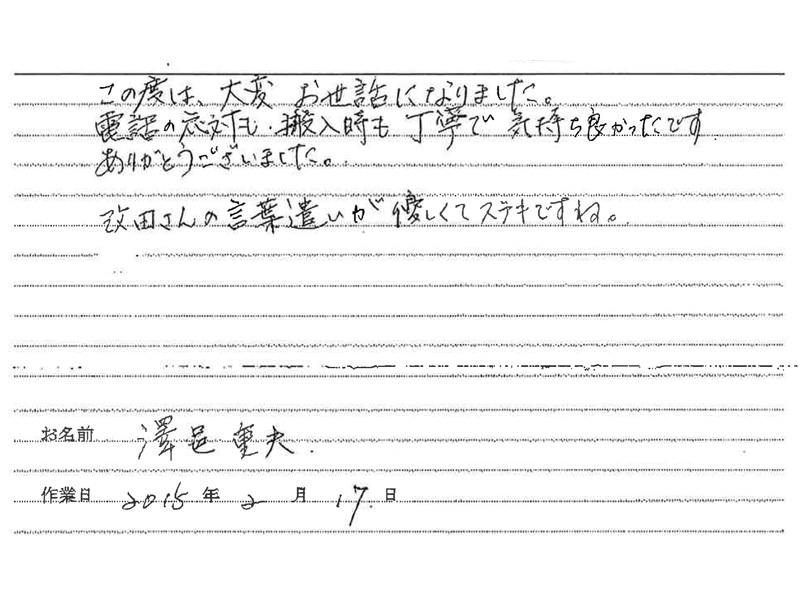 この度は、大変 お世話になりました。
電話の応対も、搬入時も 丁寧で 気持ち良かったです
ありがとうございました。
改田さんの言葉遣いが 優しくてステキですね。
お名前 澤邑 重夫.
作業日 2015 年 2 月 17. 日